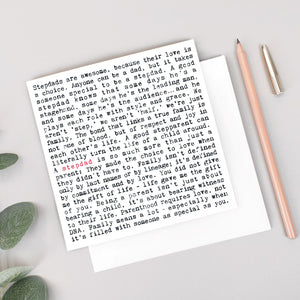 Stepdads are awesome, because their love is
a choice. Anyone can be a dad, but it takes
someone special to be a stepdad. A good
stepdad knows that some days he's a
stagehand, some days he's the leading man,
some days he's the audience... and he
plays each role with style and grace. We
aren't 'step', we aren't 'half,' we're just
family. The bond that links a true family is
not one of blood, but of respect and joy in
each other's life. A good stepparent can
literally turn the life of a child around.
A stepdad is so much more than just a
parent: They made the choice to love when
they didn't have to. Family isn't defined
only by last names or by lineage; it's defined
by commitment and by love. You did not give
me the gift of life - life gave me the gift
of you. Being a parent isn't just about
bearing a child, it's about bearing witness
to their life. Parenthood requires love, not
DNA. Family means a lot - especially when
it's filled with someone as special as you.